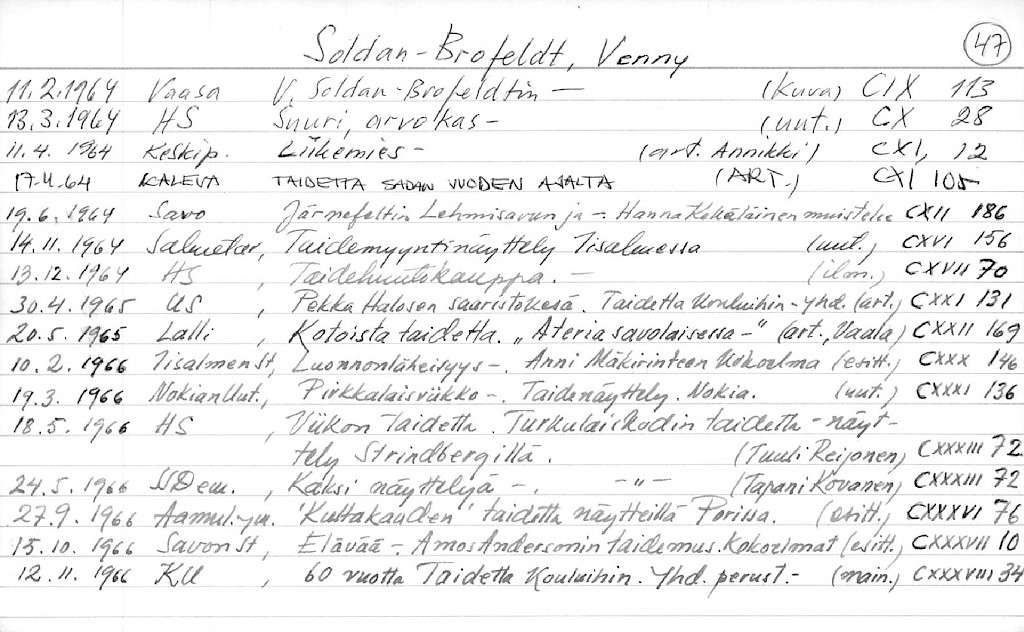 Soldan-Brofeldt, Venny 47
11.2.1964 Vaasa V. Soldan-Brofeldtin — (kuva) CIX 113
13.3.1964 HS Suuri, arvokas - (uut.) CX 28
11.4. 1964 Keskip. Liikemies - (art. Annikki) CXI, 12
17.4.64 KALEVA TAIDETTA SADAN VUODEN AJALTA (ART.) CXI 105
19.6.1964 Savo Järnefeltin Lehmisavun ja -. Hanna Kekäläinen muistelee CXII 186
14.11.1964 Salmetar, Taidemyyntinäyttely Iisalmessa (uut.) CXVI 156
13.12.1964 HS , Taidehuutokauppa. — (ilm.) CXVII 70
30.4.1965 US , Pekka Halosen saaristokesä. Taidetta kouluihin-yhd. (art.) CXXI 131
20.5.1965 Lalli , Kotoista taidetta. „Ateria savolaisessa -" (art., Vaala) CXXII 169
10.2.1966 Iisalmen St, Luonnonläheisyys -. Anni Mäkirinteen kokoelma (esitt.) CXXX 146
19.3.1966 Nokian Uut., Pirkkalaisviikko -. Taidenäyttely. Nokia. (uut.) CXXXI 136
18.5.1966 HS , Viikon taidetta. Turkulaiskodin taidetta - näyt-
tely Strindbergillä. (Tuuli Reijonen) CXXXIII 72
24.5.1966 SDem. , Kaksi näyttelyä -. -"- (Tapani Kovanen) CXXXIII 72
27.9.1966 Aamul. , 'Kultakauden' taidetta näytteillä Porissa. (esitt.) CXXXVI 76
15.10.1966 Savon St , Elävää -. Amos Andersonin taidemus. kokoelmat (esitt.) CXXXVII 10
12.11.1966 KU , 60 vuotta Taidetta kouluihin. Yhd. perust.- (main.) CXXXVIII 34